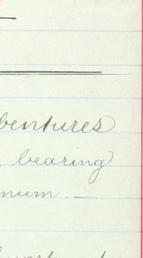 bentures
bearing
num.